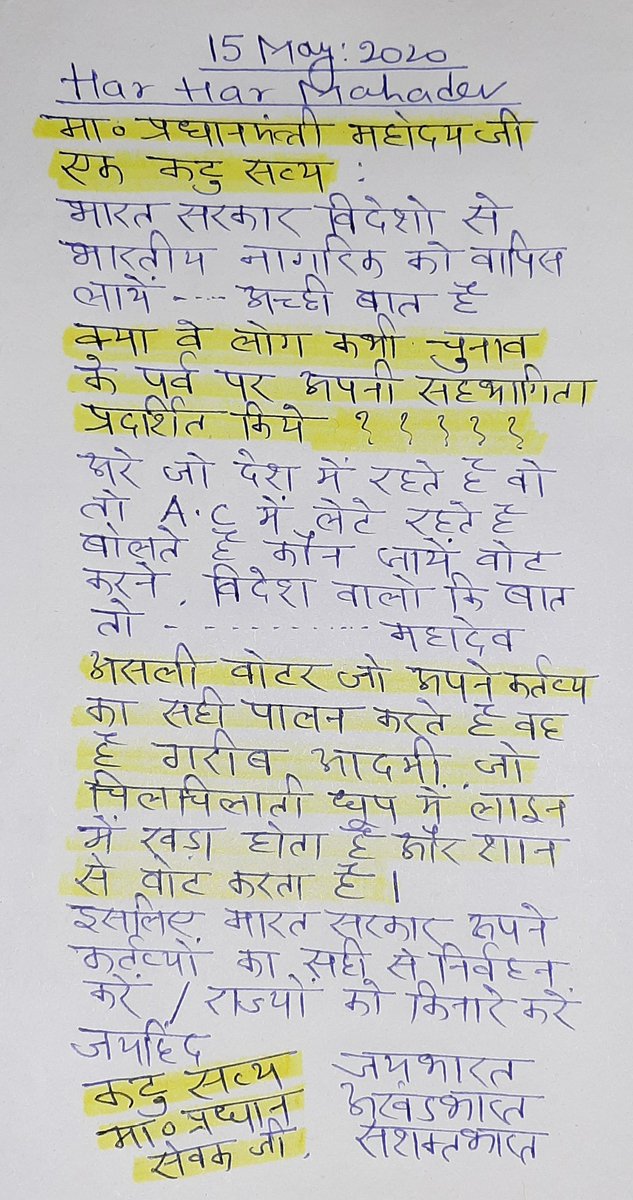 15 May: 2020
Har Har Mahadev
मा० प्रधानमंत्री महोदय जी
एक कटु सत्य :
भारत सरकार विदेशो से
भारतीय नागरिक को वापिस
लायें ---- अच्छी बात है
क्या वे लोग कभी चुनाव
के पर्व पर अपनी सहभागिता
प्रदर्शित किये ? ? ? ? ?
अरे जो देश में रहते है वो
तो A.C में लेटे रहते है
बोलते है कौन जायें वोट
करने , विदेश वालो कि बात
तो - - - - - - - - - - - - महादेव
असली वोटर जो अपने कर्तव्य
का सही पालन करते है वह
है गरीब आदमी, जो
चिलचिलाती धूप में लाइन
में खड़ा होता है और शान
से वोट करता है ।
इसलिए भारत सरकार अपने
कर्तव्यों का सही से निर्वहन
करें / राज्यों को किनारे करें
जयहिंद
जयभारत
कटु सत्य
अखंडभारत
मा० प्रधान
सशक्तभारत
सेवक जी.